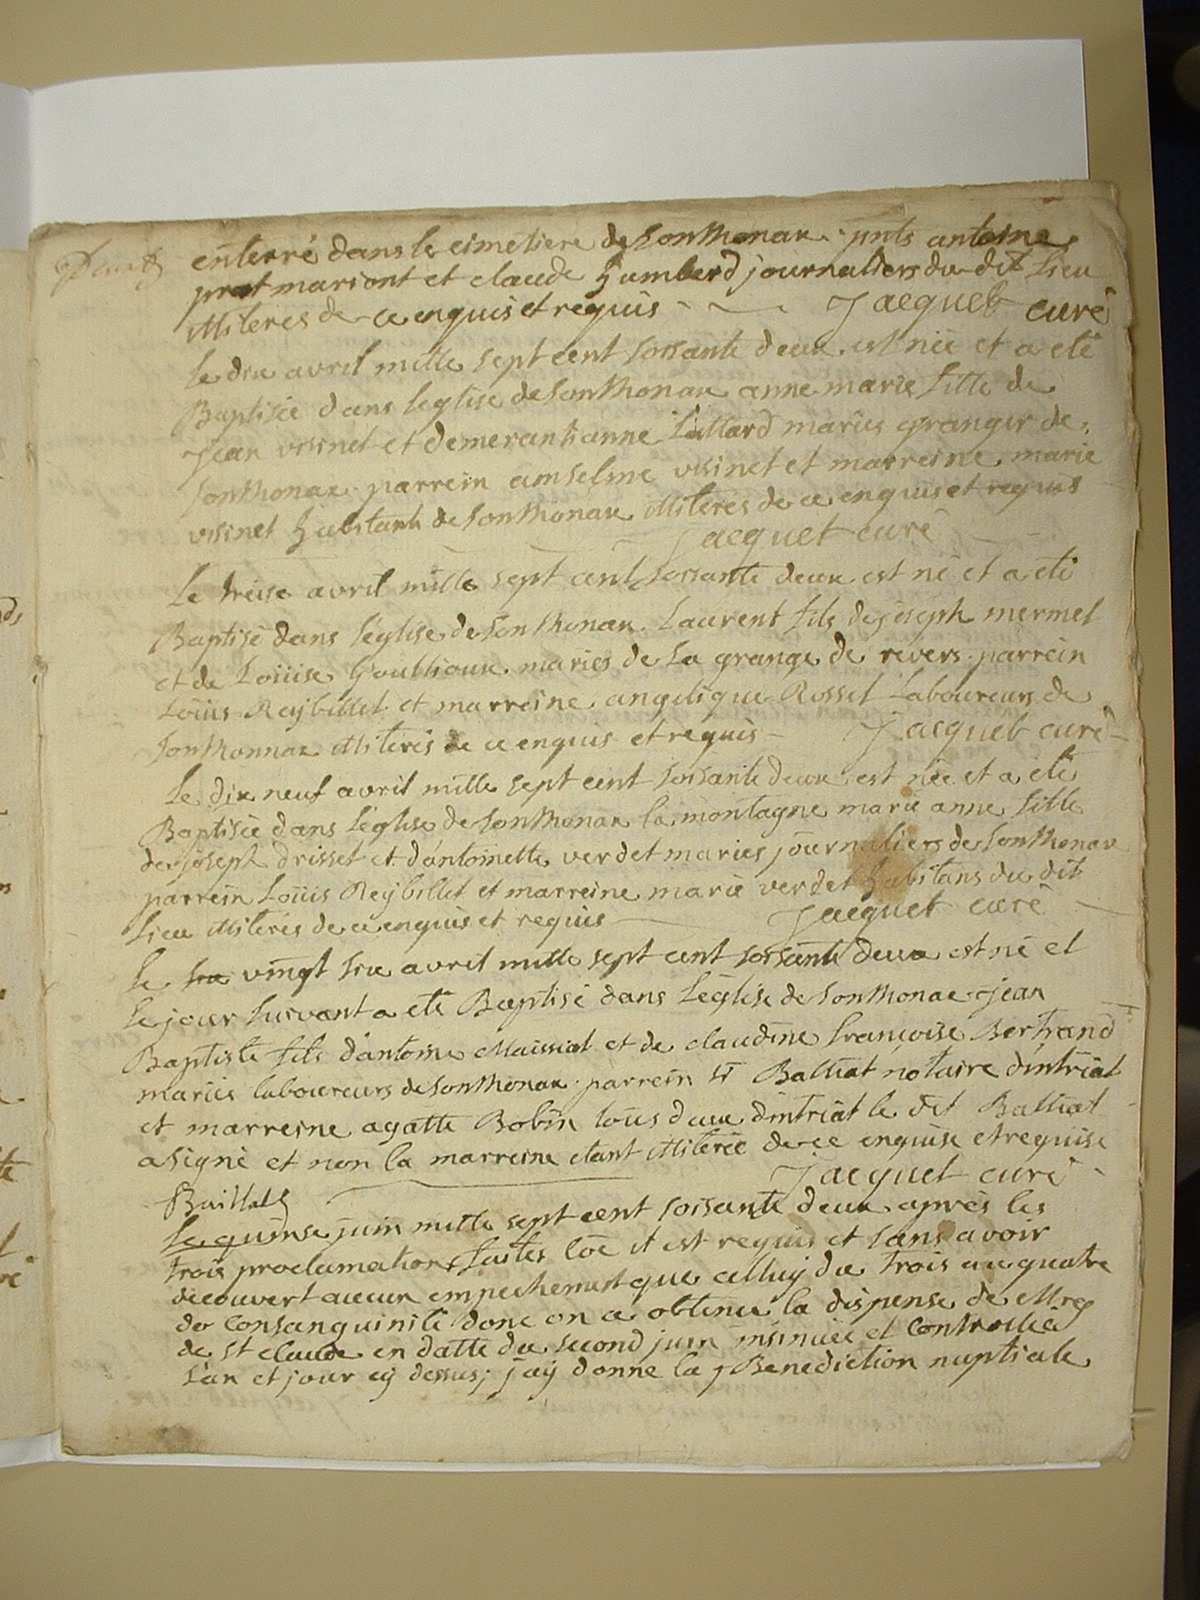 enterré dans le cimetiere de Sonthonax. pnts antoine
prat mariont et claude humberd journaliers du dit Lieu
illiteres de ce enquis et requis Jacquet curé
Le dix avril mille sept cent soissante deux est née et a eté
Baptisée dans leglise de Sonthonax anne marie fille de
jean visinet et demerantianne juillard mariés granger de
Sonthonax. parrein anselme visinet et marreine marie
visinet habitants de Sonthonax illiteres de ce enquis et requis
Jacquet curé
Le treise avril mille sept cent soissante deux est né et a eté
Baptisé dans l'église de Sonthonax. Laurent fils de joseph mermet
et de Loüise Goublioux. mariés de La grange de revers. parrein
Loüis Reybillet et marreine angelique Rosset Laboureurs de
Sonthonnax illiterés de ce enquis et requis Jacquet curé
Le dix neuf avril mille sept cent soissante deux est née et a eté
Baptisée dans l'église de Sonthonax la montagne marie anne fille
de joseph drisset et d'antoinette verdet mariés journaliers de Sonthonax
parrein Loüis Reybillet et marreine marie verdet habitans du dit
Lieu illiterés de ce enquis et requis Jacquet curé
Le vingt six avril mille sept cent soissante deux est né et
Le jour suivant a eté Baptisé dans L'église de Sonthonax jean
Baptiste fils d'antoine Maissiat et de claudine françoise Bertrand
mariés laboureurs de Sonthonax. parrein Sr Balliat notaire d'intriat
et marreine agatte Bobin tous deux d'intriat le dit Balliat
a signé et non la marreine etant illiterée de ce enquise et requise
Jacquet curé
Balliat
Le quinse juin mille sept cent soissante deux après les
trois proclamations faites coe il est requis et sans avoir
decouvert aucun empechement que celluy du trois au quatre
de consanguinité donc on a obtenu la dispense de
de St claude en datte du second juin insinuée et controllée
L'an et jour cy dessus; j'ay donne la Benediction nuptiale